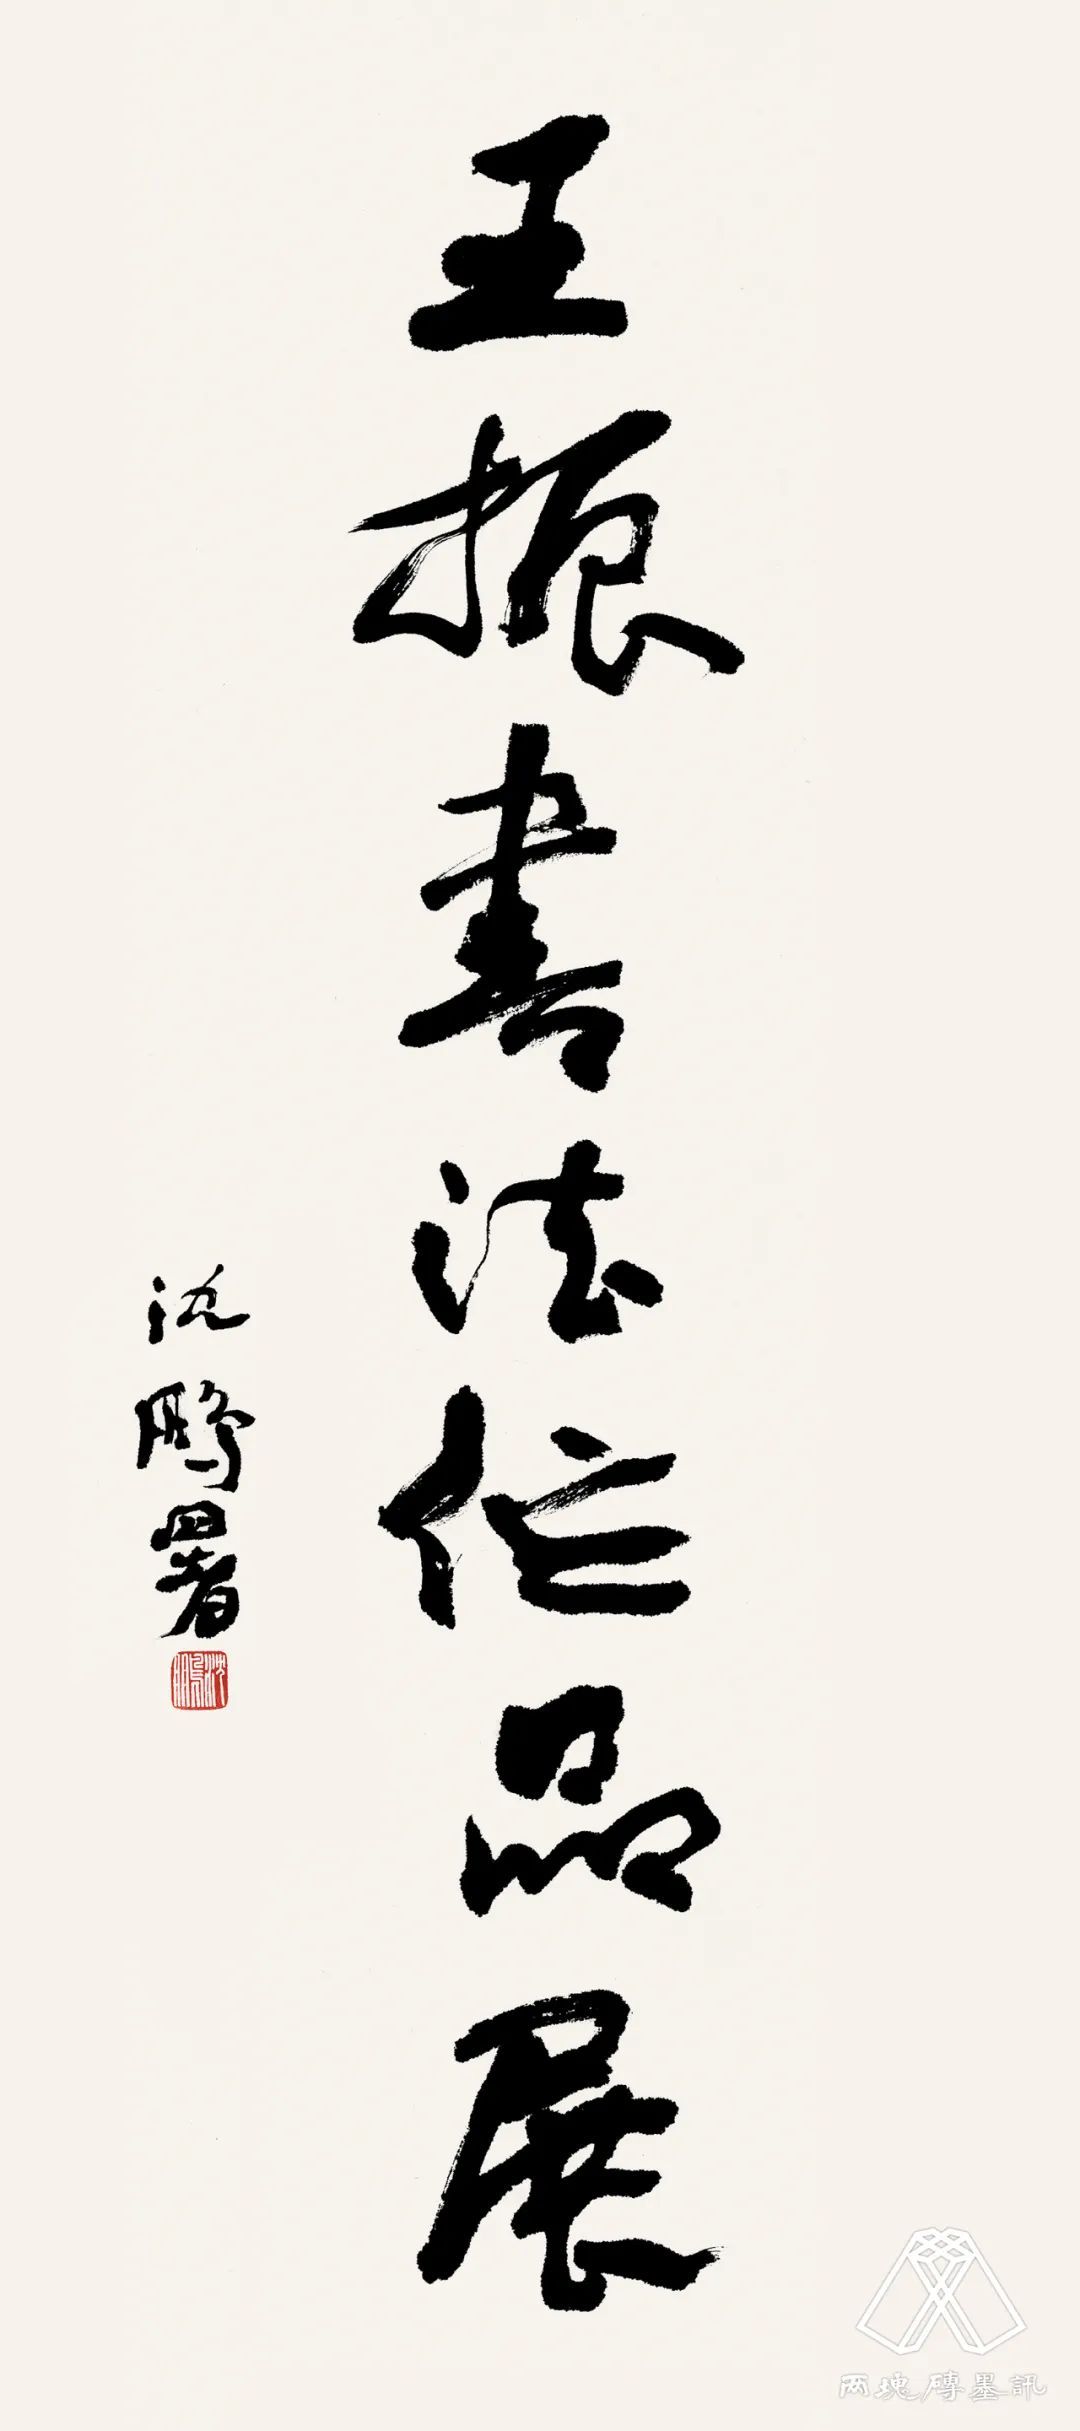 王振書法作品展
沈鵬署
沈鵬
两塊磚墨訊